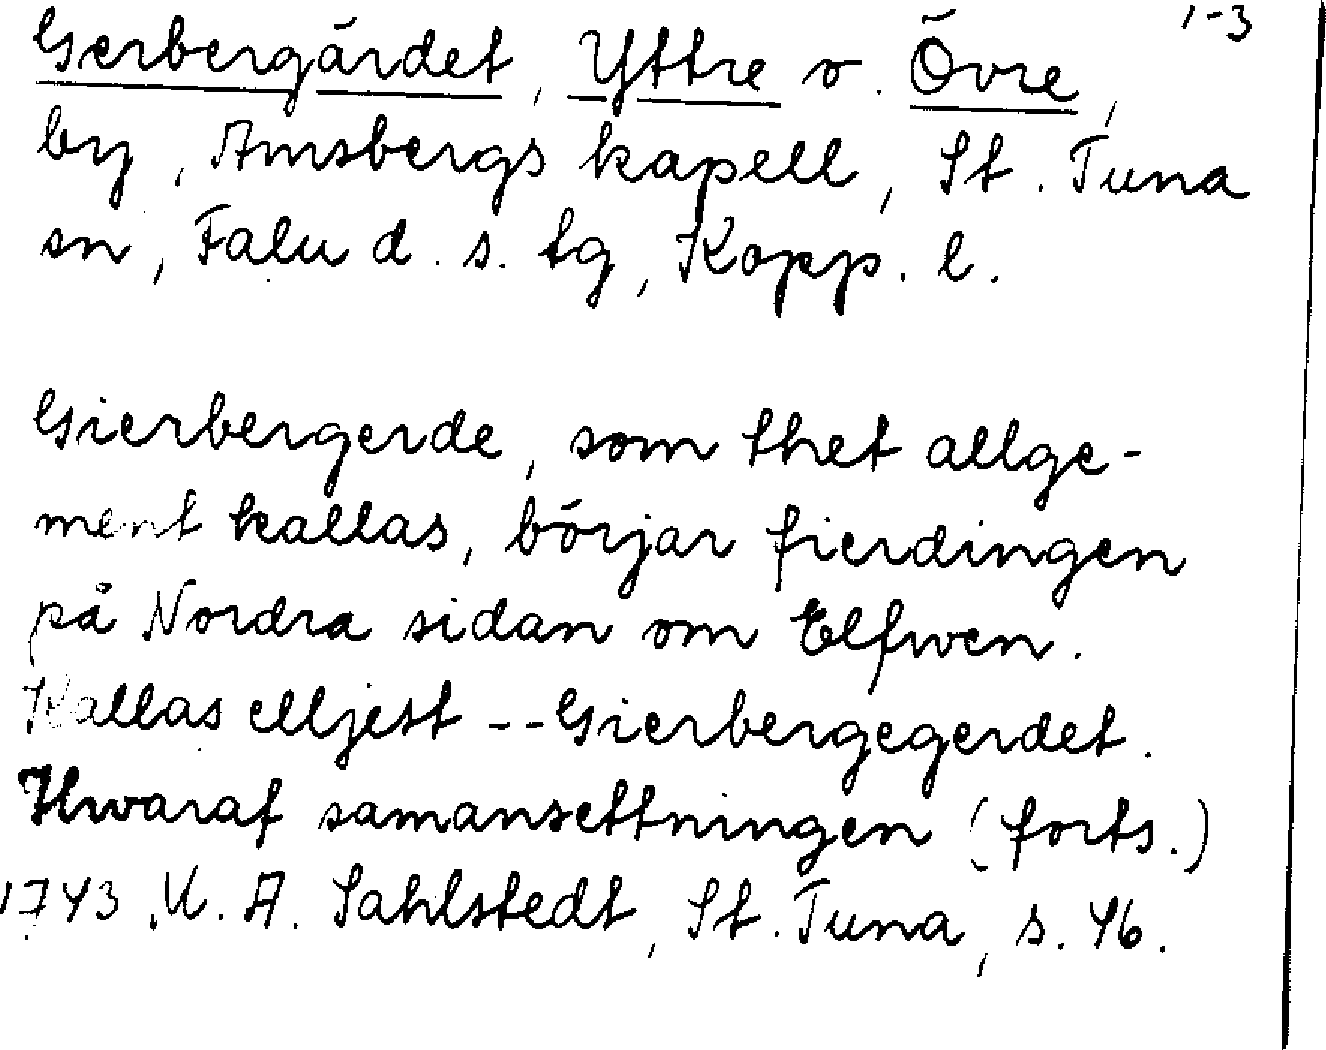 1-3
Gerbergärdet, Yttre o. Övre,
by, Amsbergs kapell, St. Tuna
sn, Falu d. s. tg, Kopp. l.
Gierbergerde, som thet allge-
ment kallas, börjar fierdingen
på Nordra sidan om Elfwen.
Kallas elljest -- Gierbergegerdet.
Hwaraf samansettningen (forts.)
1743 U. A. Sahlstedt, St. Tuna, s. 46.